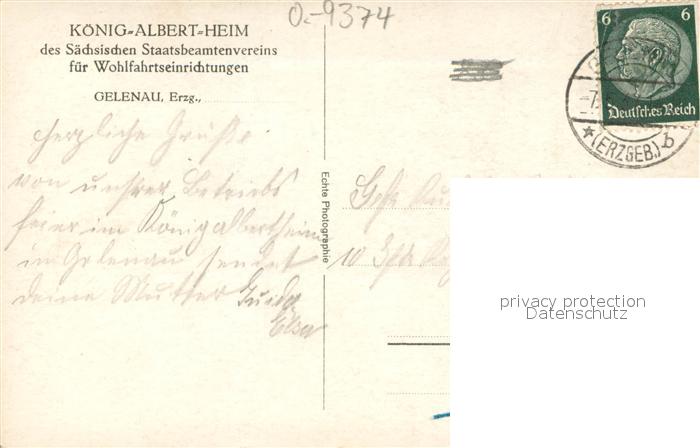 O.-9374
KÖNIG-ALBERT-HEIM
des Sächsischen Staatsbeamtenvereins
für Wohlfahrtseinrichtungen
GELENAU, Erzg.,
herzliche Grüße
von unsrer Betriebs
feier im König Albertheim
in Gelenau sendet
deine Mutter
Echte Photographie
10
6 6
Deutsches Reich
(ERZGEB.) b
privacy protection
Datenschutz